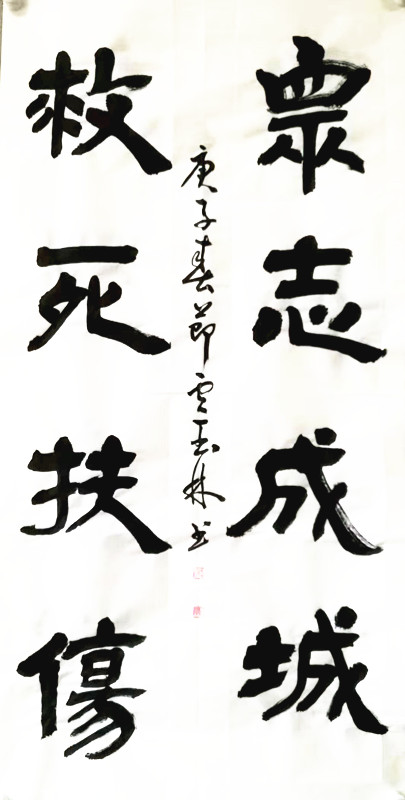 眾志成城
救死扶傷
庚子春節雲玉林书